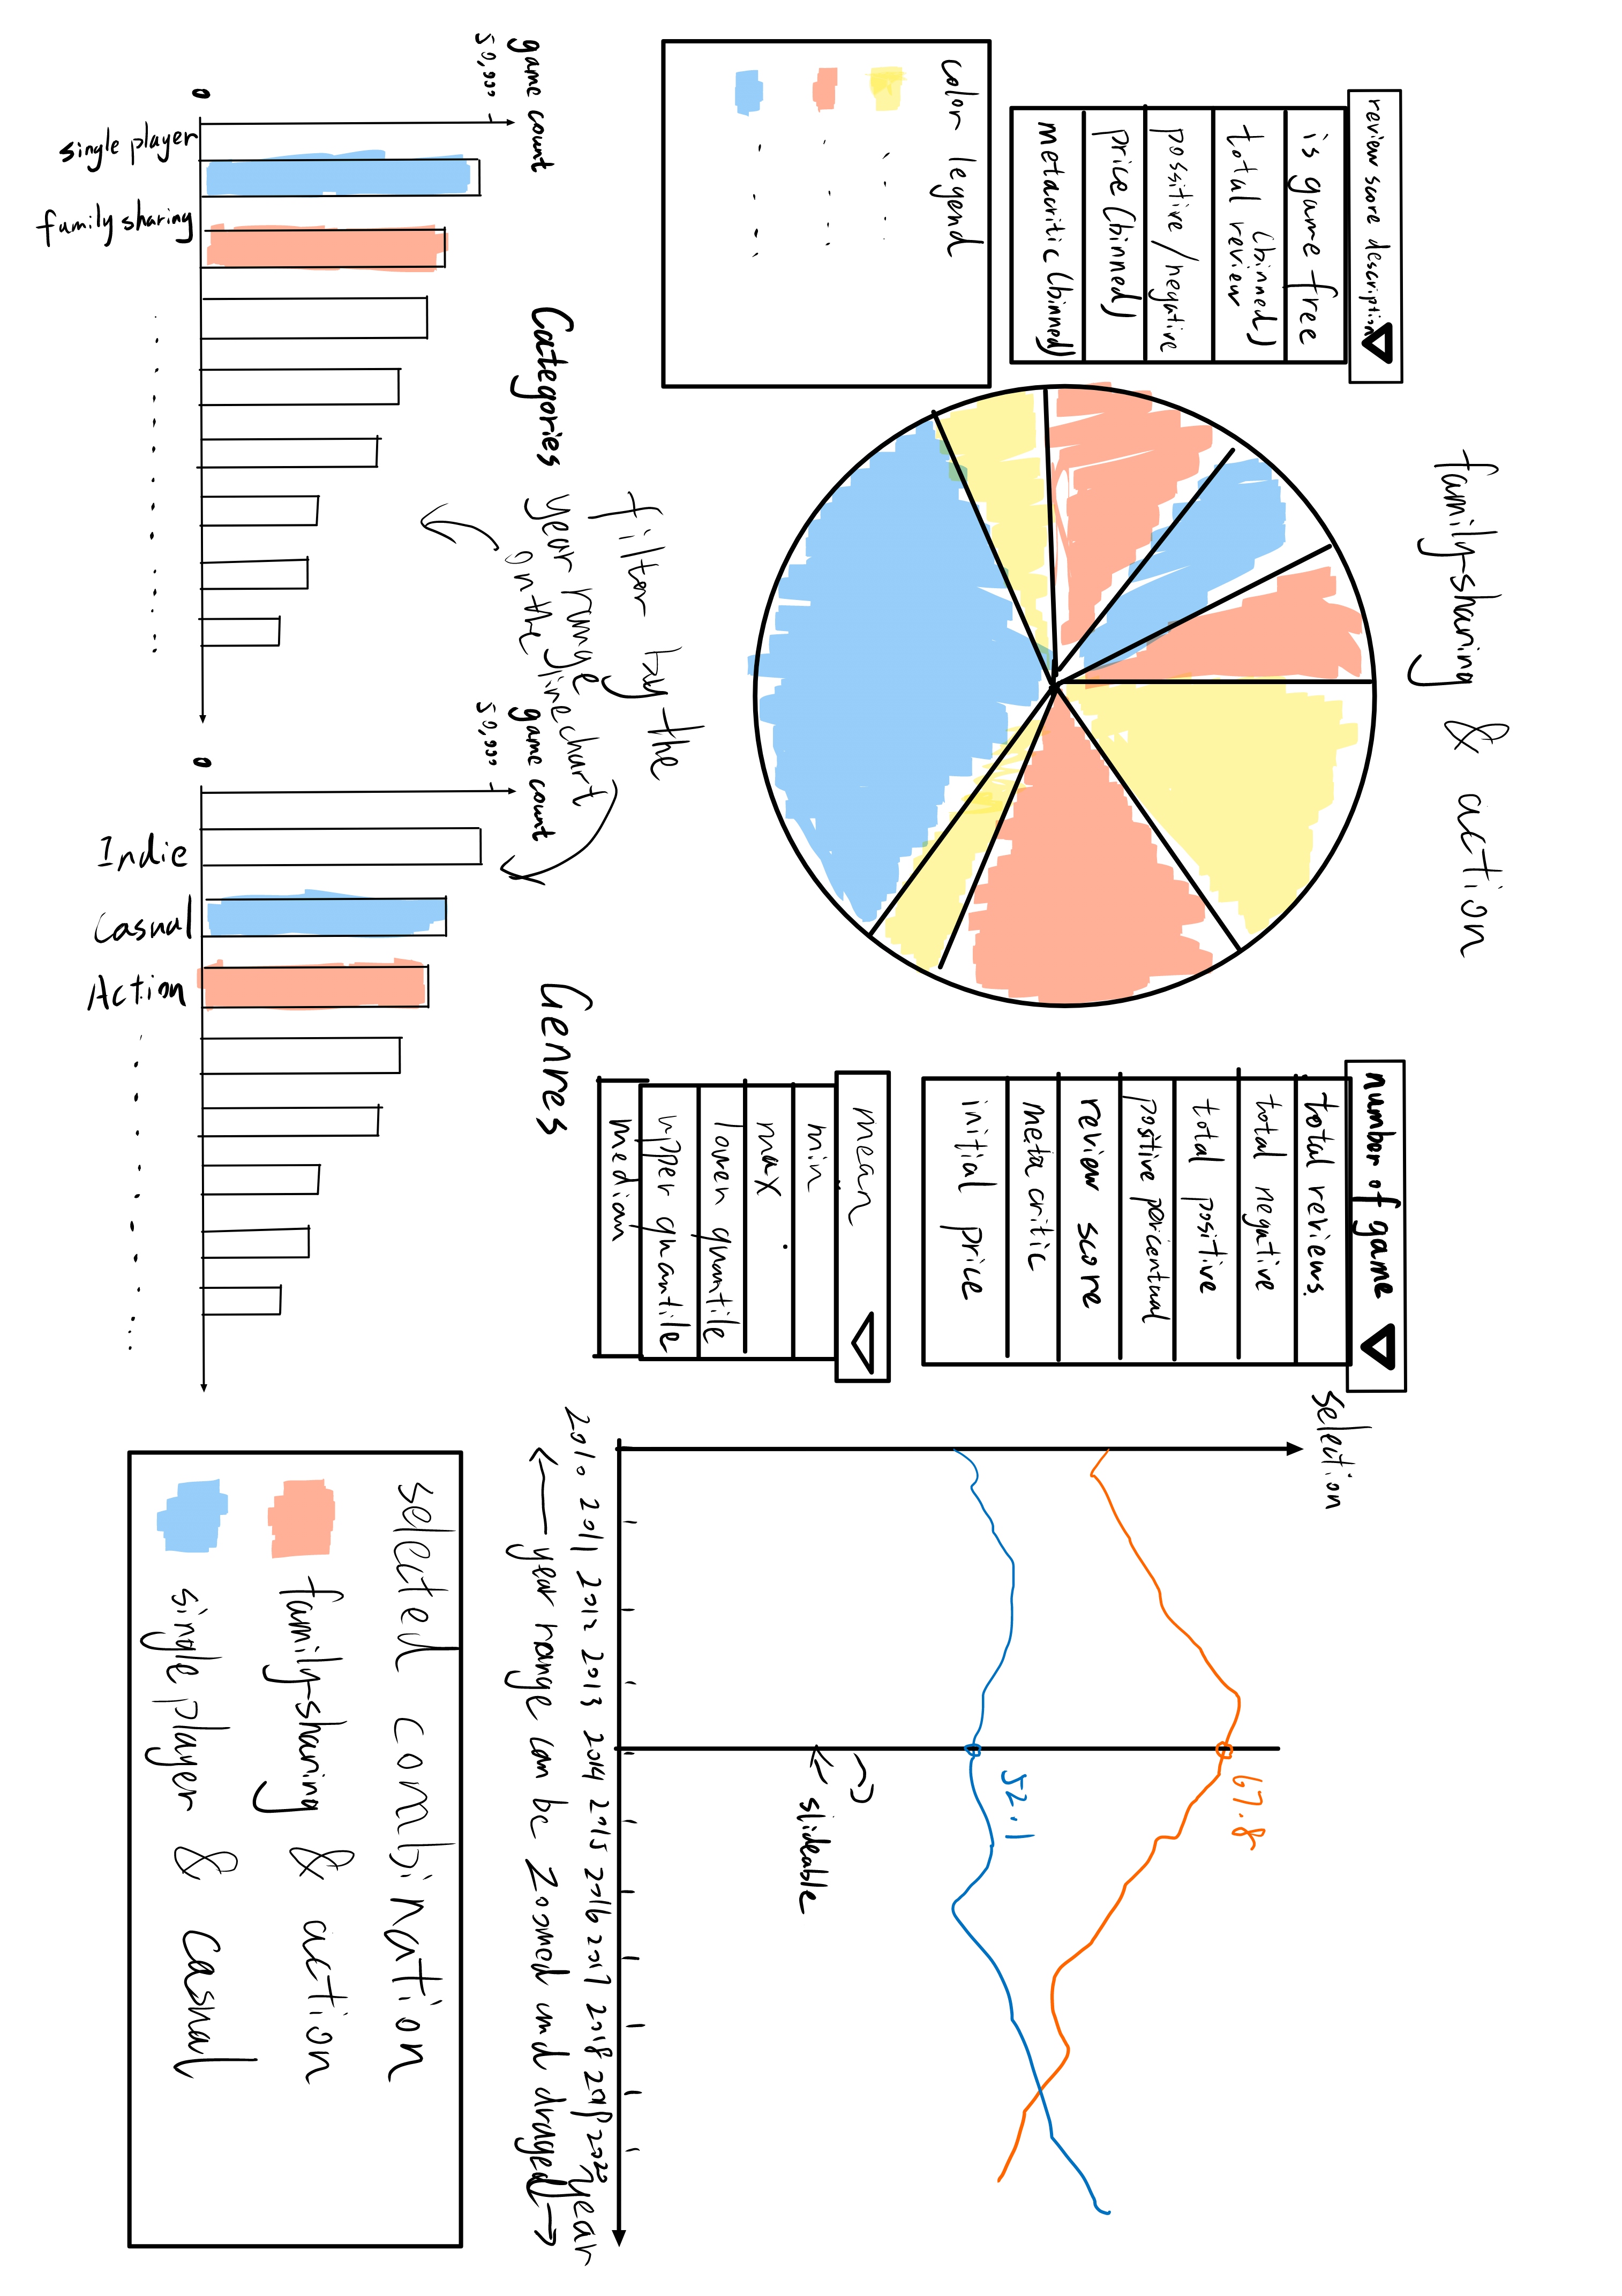 family-sharing & action
review score description
is game free
(binned)
total review
possitive/negative
price (binned)
metacritic (binned)
color legend
number of game
total reviews.
total negative
total positive
positive percentual
review score
meta critic
initial price
mean
min
max
lower quantile
upper quantile
median
selection
67.8
52.1
slideable
2010 2011 2012 2013 2014 2015 2016 2017 2018 2019 2020
year
year range can be zoomed und draged
filter by the
year range
on the linechart
Categories
game count
50,000
0
single player
family sharing
Genres
game count
50,000
0
Indie
Casual
Action
selected combination
family-sharing & action
single player & casual